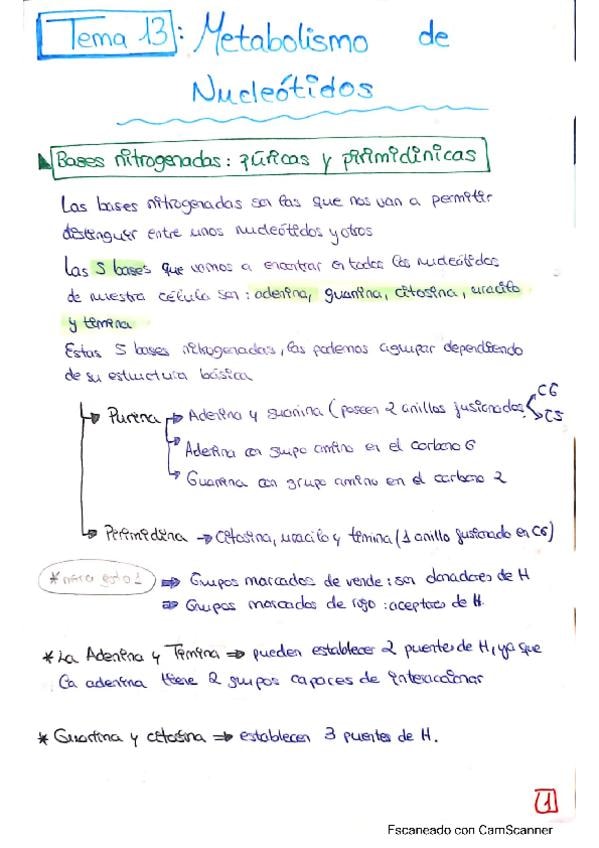 Tema 13: Metabolismo de
Nucleótidos
Bases nitrogenadas: púricas y pirimidínicas
Las bases nitrogenadas son las que nos van a permitir
distinguir entre unos nucleótidos y otros
Las 5 bases que vamos a encontrar en todos los nucleótidos
de nuestra célula son: adenina, guanina, citosina, uracilo
y timina
Estas 5 bases nitrogenadas, las podemos agrupar dependiendo
de su estructura básica
Purina → Adenina y guanina (poseen 2 anillos fusionados C6
C5
Adenina con grupo amino en el carbono 6
Guanina con grupo amino en el carbono 2
Pirimidina → Citosina, uracilo y timina (1 anillo fusionado en C6)
* mira esto! ⇒ Grupos marcados de verde: son donadores de H
⇒ Grupos marcados de rojo: aceptores de H.
* La Adenina y Timina ⇒ pueden establecer 2 puentes de H, ya que
la adenina tiene 2 grupos capaces de interaccionar
* Guanina y citosina ⇒ establecen 3 puentes de H.
1
Escaneado con CamScanner